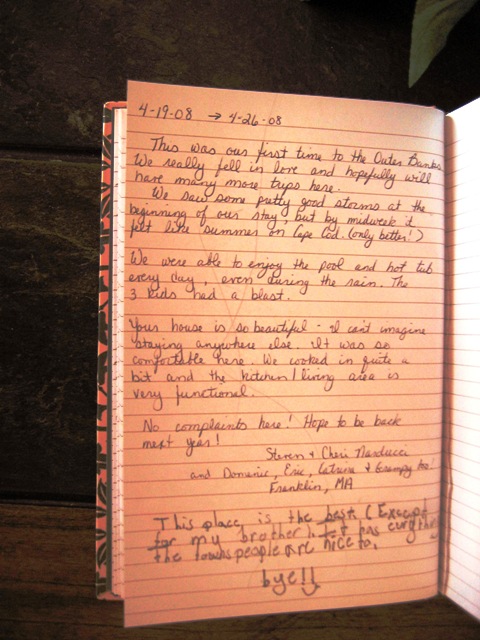 4-19-08 → 4-26-08
This was our first time to the Outer Banks.
We really fell in love and hopefully will
have many more trips here.
We saw some pretty good storms at the
beginning of our stay, but by midweek it
felt like summer on Cape Cod. (only better!)
We were able to enjoy the pool and hot tub
every day, even during the rain. The
3 kids had a blast.
Your house is so beautiful - I can't imagine
staying anywhere else. It was so
comfortable here. We cooked in quite a
bit and the kitchen/living area is
very functional.
No complaints here! Hope to be back
next year!
Steven + Cheri Narducci
and Domenic, Eric, Catrina + Grampy too!
Franklin, MA
This place is the best. (Except
for my brother.) It has
the townspeople are nice to.
bye!!